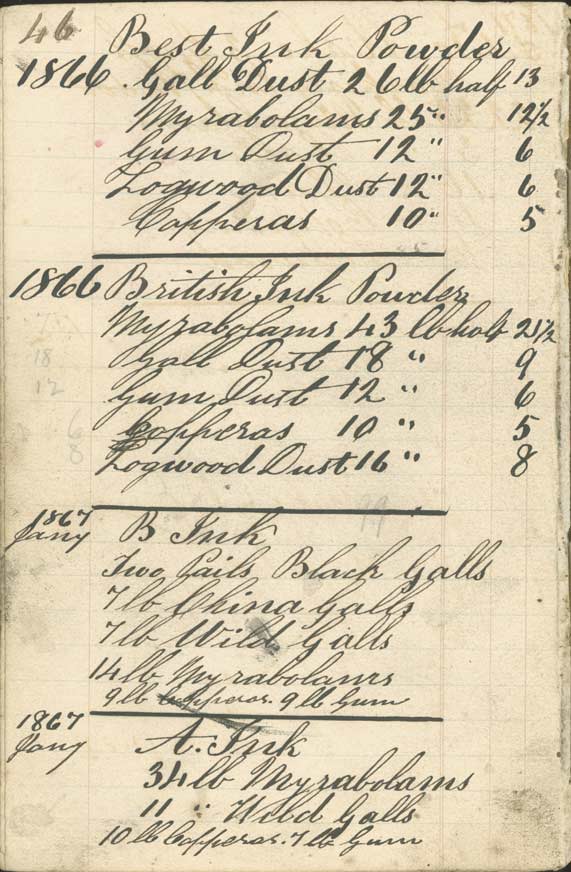 46
Best Ink Powder
1866 Gall Dust 26 lb half 13
Myrabolams 25 " 12½
Gum Dust 12 " 6
Logwood Dust 12 " 6
Copperas 10 " 5
1866 British Ink Powder
Myrabolams 43 lb half 21½
Gall Dust 18 " 9
Gum Dust 12 " 6
Copperas 10 " 5
Logwood Dust 16 " 8
18
12
6
8
1867
Jany B Ink
Two Pails Black Galls
7 lb China Galls
7 lb Wild Galls
14 lb Myrabolams
9 lb Copperas. 9 lb Gum
1867
Jany A. Ink
34 lb Myrabolams
11 " Wild Galls
10 lb Copperas. 7 lb Gum